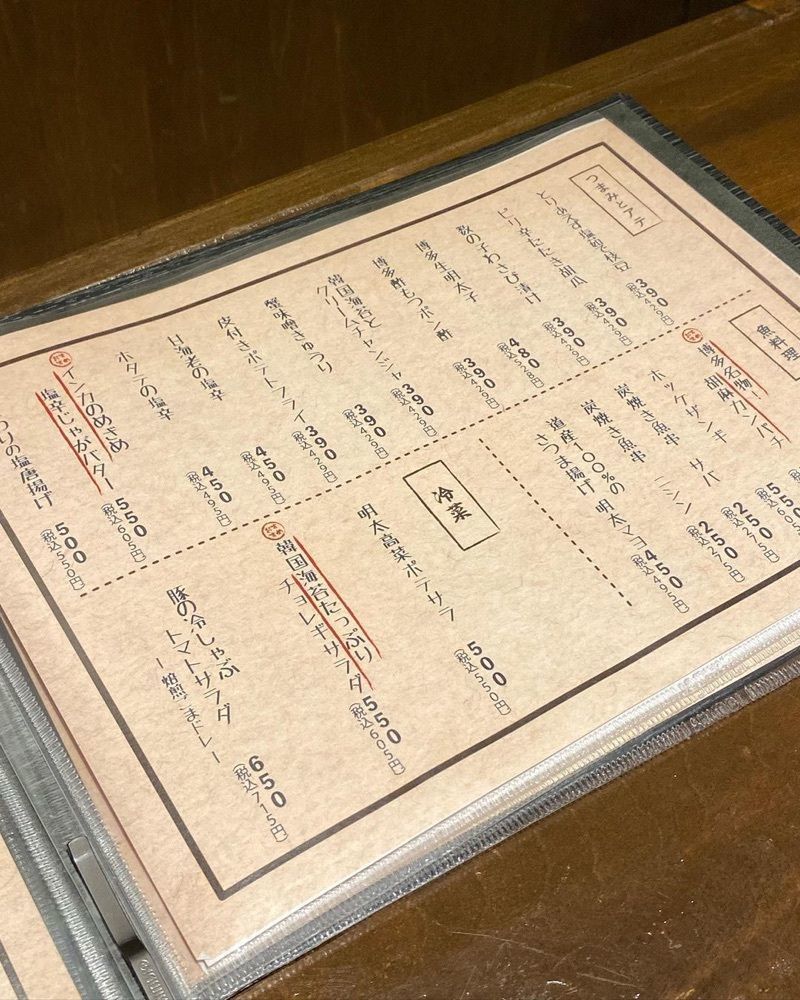 つまみとアテ
とりあえず塩茹で枝豆
390
(税込429円)
ピリ辛たたき胡瓜
390
(税込429円)
数の子わさび漬け
390
(税込429円)
博多生明太子
480
(税込528円)
博多酢もつポン酢
390
(税込429円)
韓国海苔と
クリームチャンジャ
390
(税込429円)
蟹味噌きゅうり
390
(税込429円)
皮付きポテトフライ
390
(税込429円)
甘海老の塩辛
450
(税込495円)
ホタテの塩辛
450
(税込495円)
インカのめざめ
塩辛じゃがバター
550
(税込605円)
の塩唐揚げ
500
(税込550円)
魚料理
博多名物!
胡麻カンパチ
550
(税込605
ホッケザンギ
55
炭焼き魚串 サバ
250
(税込275円)
炭焼き魚串 ニシン
250
(税込275円)
道産100%の
さつま揚げ 明太マヨ
450
(税込495円)
冷菜
明太高菜ポテサラ
500
(税込550円)
韓国海苔たっぷり
チョレギサラダ
550
(税込605円)
豚の冷しゃぶ
トマトサラダ
ー焙煎ごまドレー
650
(税込715円)